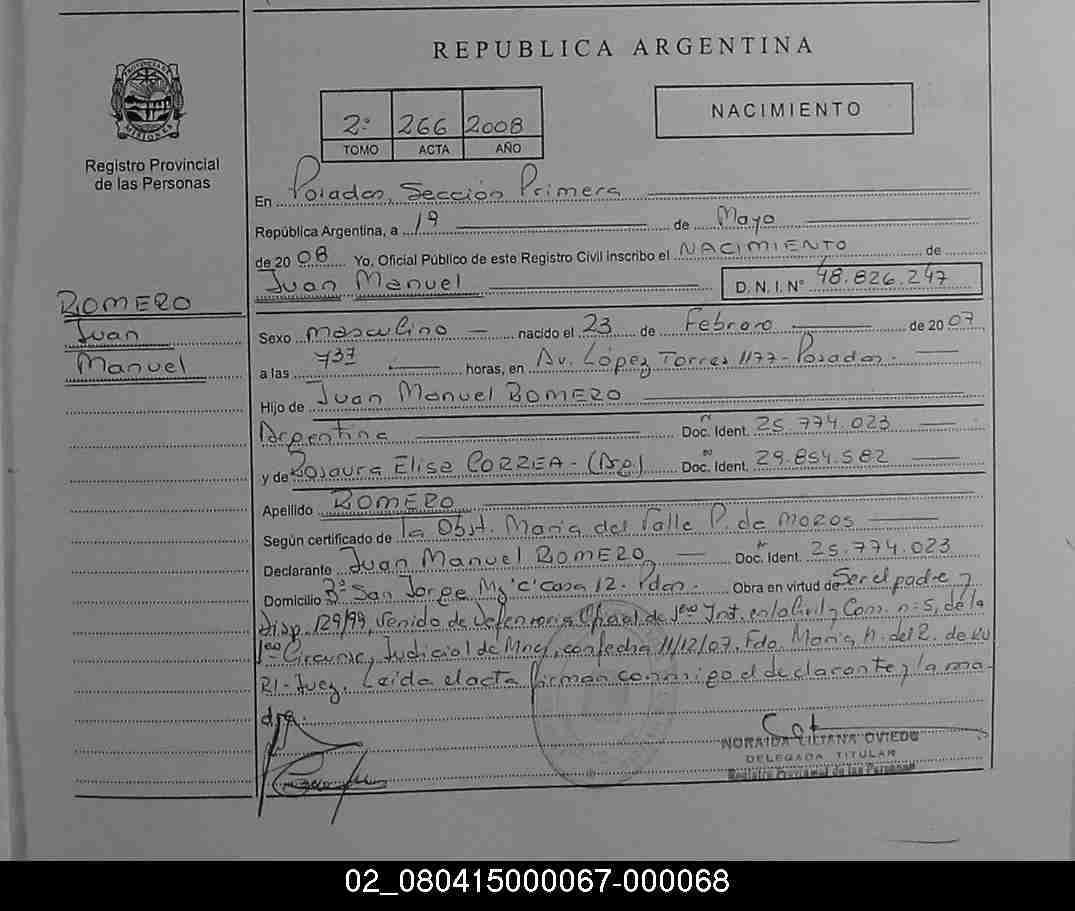 REPUBLICA ARGENTINA
PROVINCIA DE
MISIONES
Registro Provincial
de las Personas
2º 266 2008
TOMO ACTA AÑO
NACIMIENTO
En Posadas, Sección Primera
República Argentina, a 19 de Mayo
de 2008 Yo, Oficial Público de este Registro Civil inscribo el NACIMIENTO de
Juan Manuel D. N. I. Nº 48.826.247
ROMERO
Juan
Manuel
Sexo masculino nacido el 23 de Febrero de 2007
a las 737 horas, en Av. López Torres 1177 - Posadas.
Hijo de Juan Manuel ROMERO
Argentino Doc. Ident. 25.774.023
y de Rosaura Elise CORREA - (Arg.) Doc. Ident. 29.854.582
Apellido ROMERO
Según certificado de la Obst. María del Valle P. de MOROS
Declarante Juan Manuel ROMERO Doc. Ident. 25.774.023
Domicilio Bº San Jorge Mz 'C' Casa 12. Pdas. Obra en virtud de Ser el padre y
Disp. 129/99, venido de Defensoria Oficial de 1era Inst. en lo Civil y Com. nº 5, de la
1era Circunsc. Judicial de Mnes, con fecha 11/12/07. Fdo. María del R. de
Juez. Leída el acta firman conmigo el declarante y la ma-
dre.
NORAIDA LILIANA OVIEDO
DELEGADA TITULAR
Registro Provincial de las Personas
02_080415000067-000068